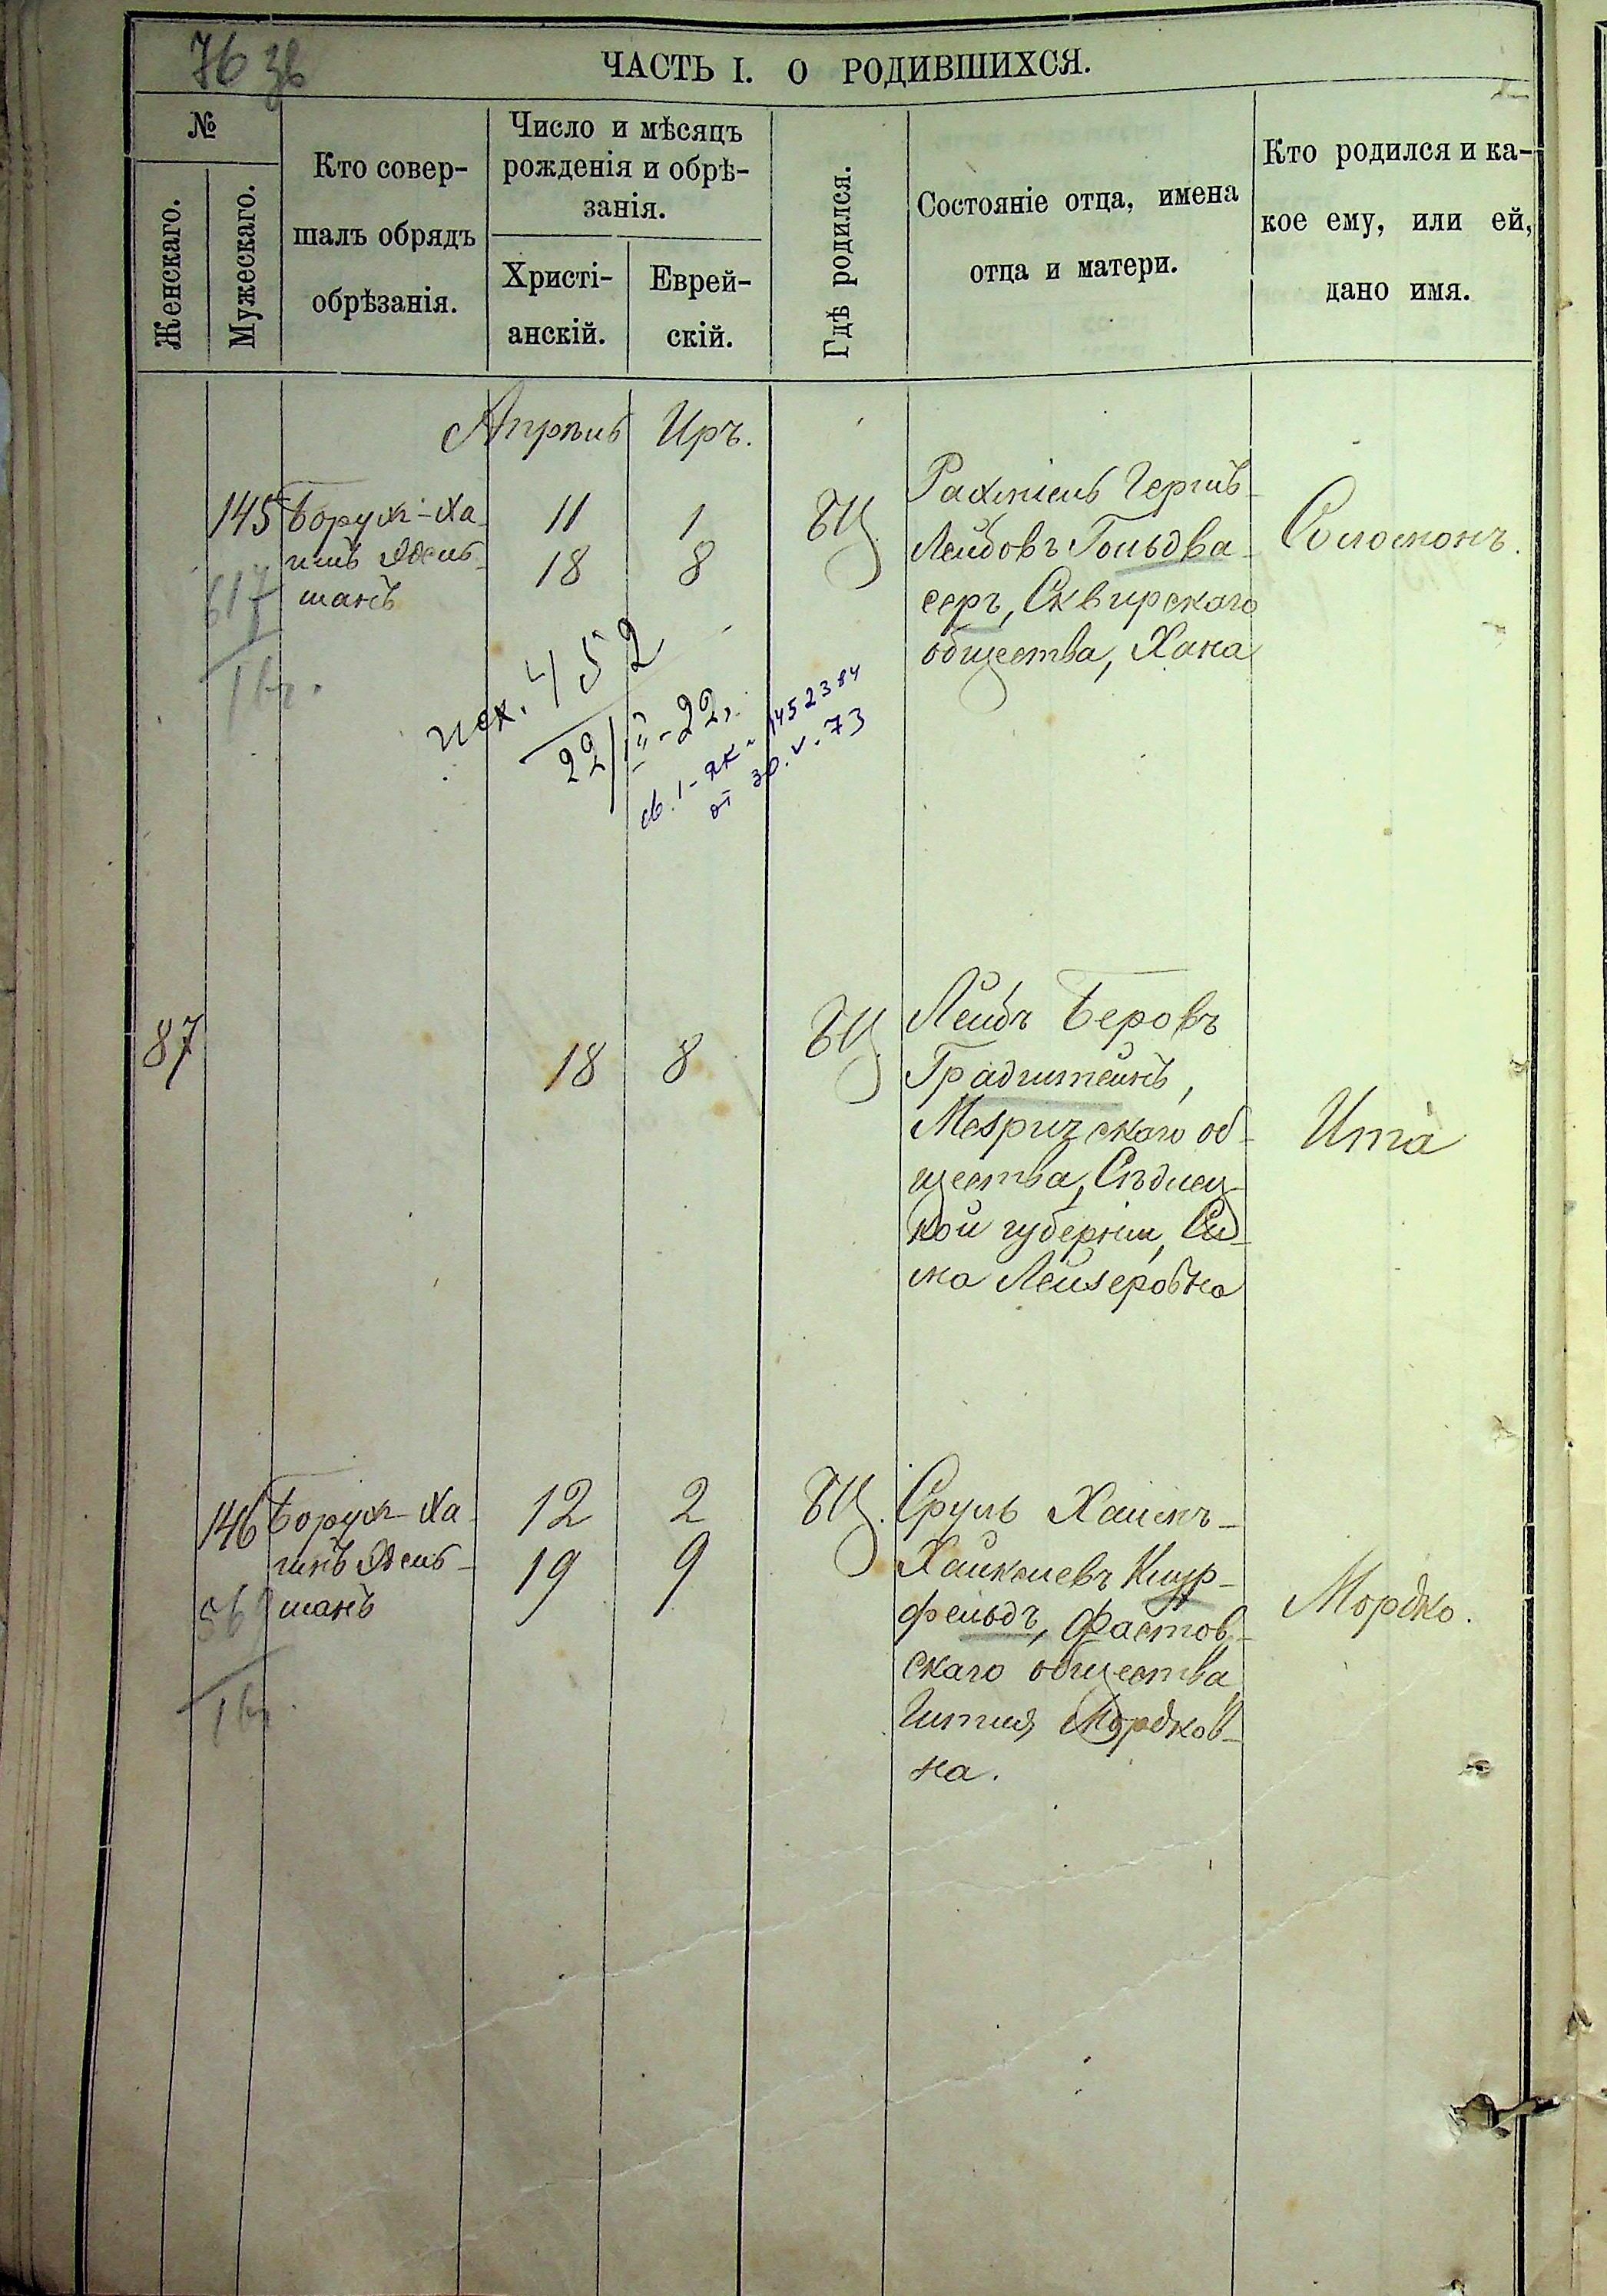 76 зв
ЧАСТЬ I. О РОДИВШИХСЯ.
№
Женскаго.
Мужескаго.
Кто совер-
шалъ обрядъ
обрѣзанія.
Число и мѣсяцъ
рожденія и обрѣ-
занія.
Христі-
анскій.
Еврей-
скій.
Гдѣ родился.
Состояніе отца, имена
отца и матери.
Кто родился и ка-
кое ему, или ей,
дано имя.
Апрѣль Иръ.
145 Борух-Ха-
имъ Эдель-
манъ
11 1
18 8
БЦ.
Рахміель Гершъ-
Лейбовъ Гольдва-
серъ, Сквирскаго
общества, Хана
Соломонъ.
617
исх. 452
22/II-22 г.
св. 1-ЯК 1452384
от 30.V.73
87
18 8
БЦ.
Лейбъ Беровъ
Градштейнъ,
Мезричскаго об-
щества, Сѣдлец-
кой губерніи, Си-
ма Лейзеровна
Ита
146 Борух-Ха-
имъ Эдель-
манъ
12 2
19 9
БЦ.
Сруль Хаимъ-
Хайкелевъ Кнур-
фельдъ, Фастов-
скаго общества
Гитля Мордков-
на.
Мордко.
569